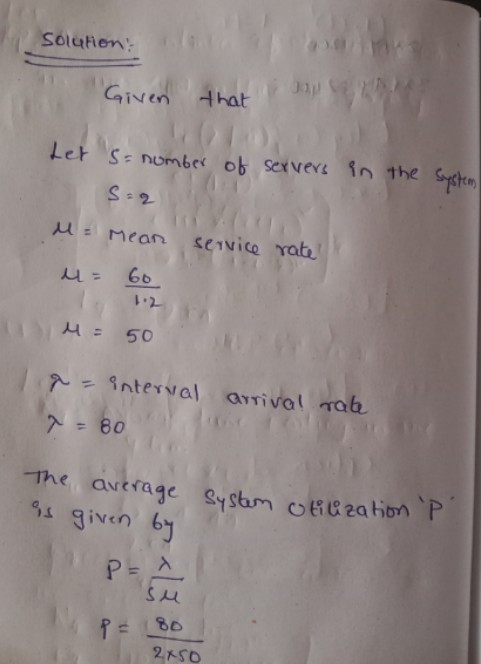 Solution:-
Given that
Let S = number of servers in the system
S = 2
μ = Mean service rate
μ = 60/1.2
μ = 50
λ = interval arrival rate
λ = 80
The average system utilization 'P'
is given by
P = λ/Sμ
P = 80/2×50